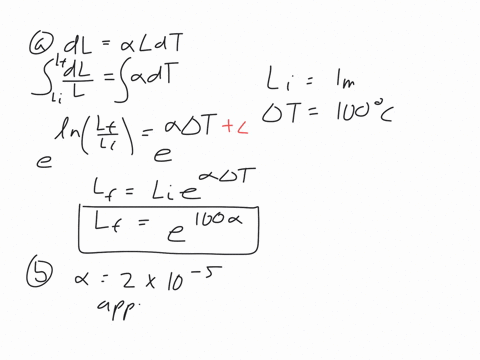 ⓐ dL = αLdT
∫_{Li}^{Lf} dL/L = ∫αdT
Li = 1m
ΔT = 100°C
e^{ln(Lf/Li)} = e^{αΔT} + c
Lf = Li e^{αΔT}
Lf = e^{100α}
ⓑ α = 2 × 10^{-5}
app.